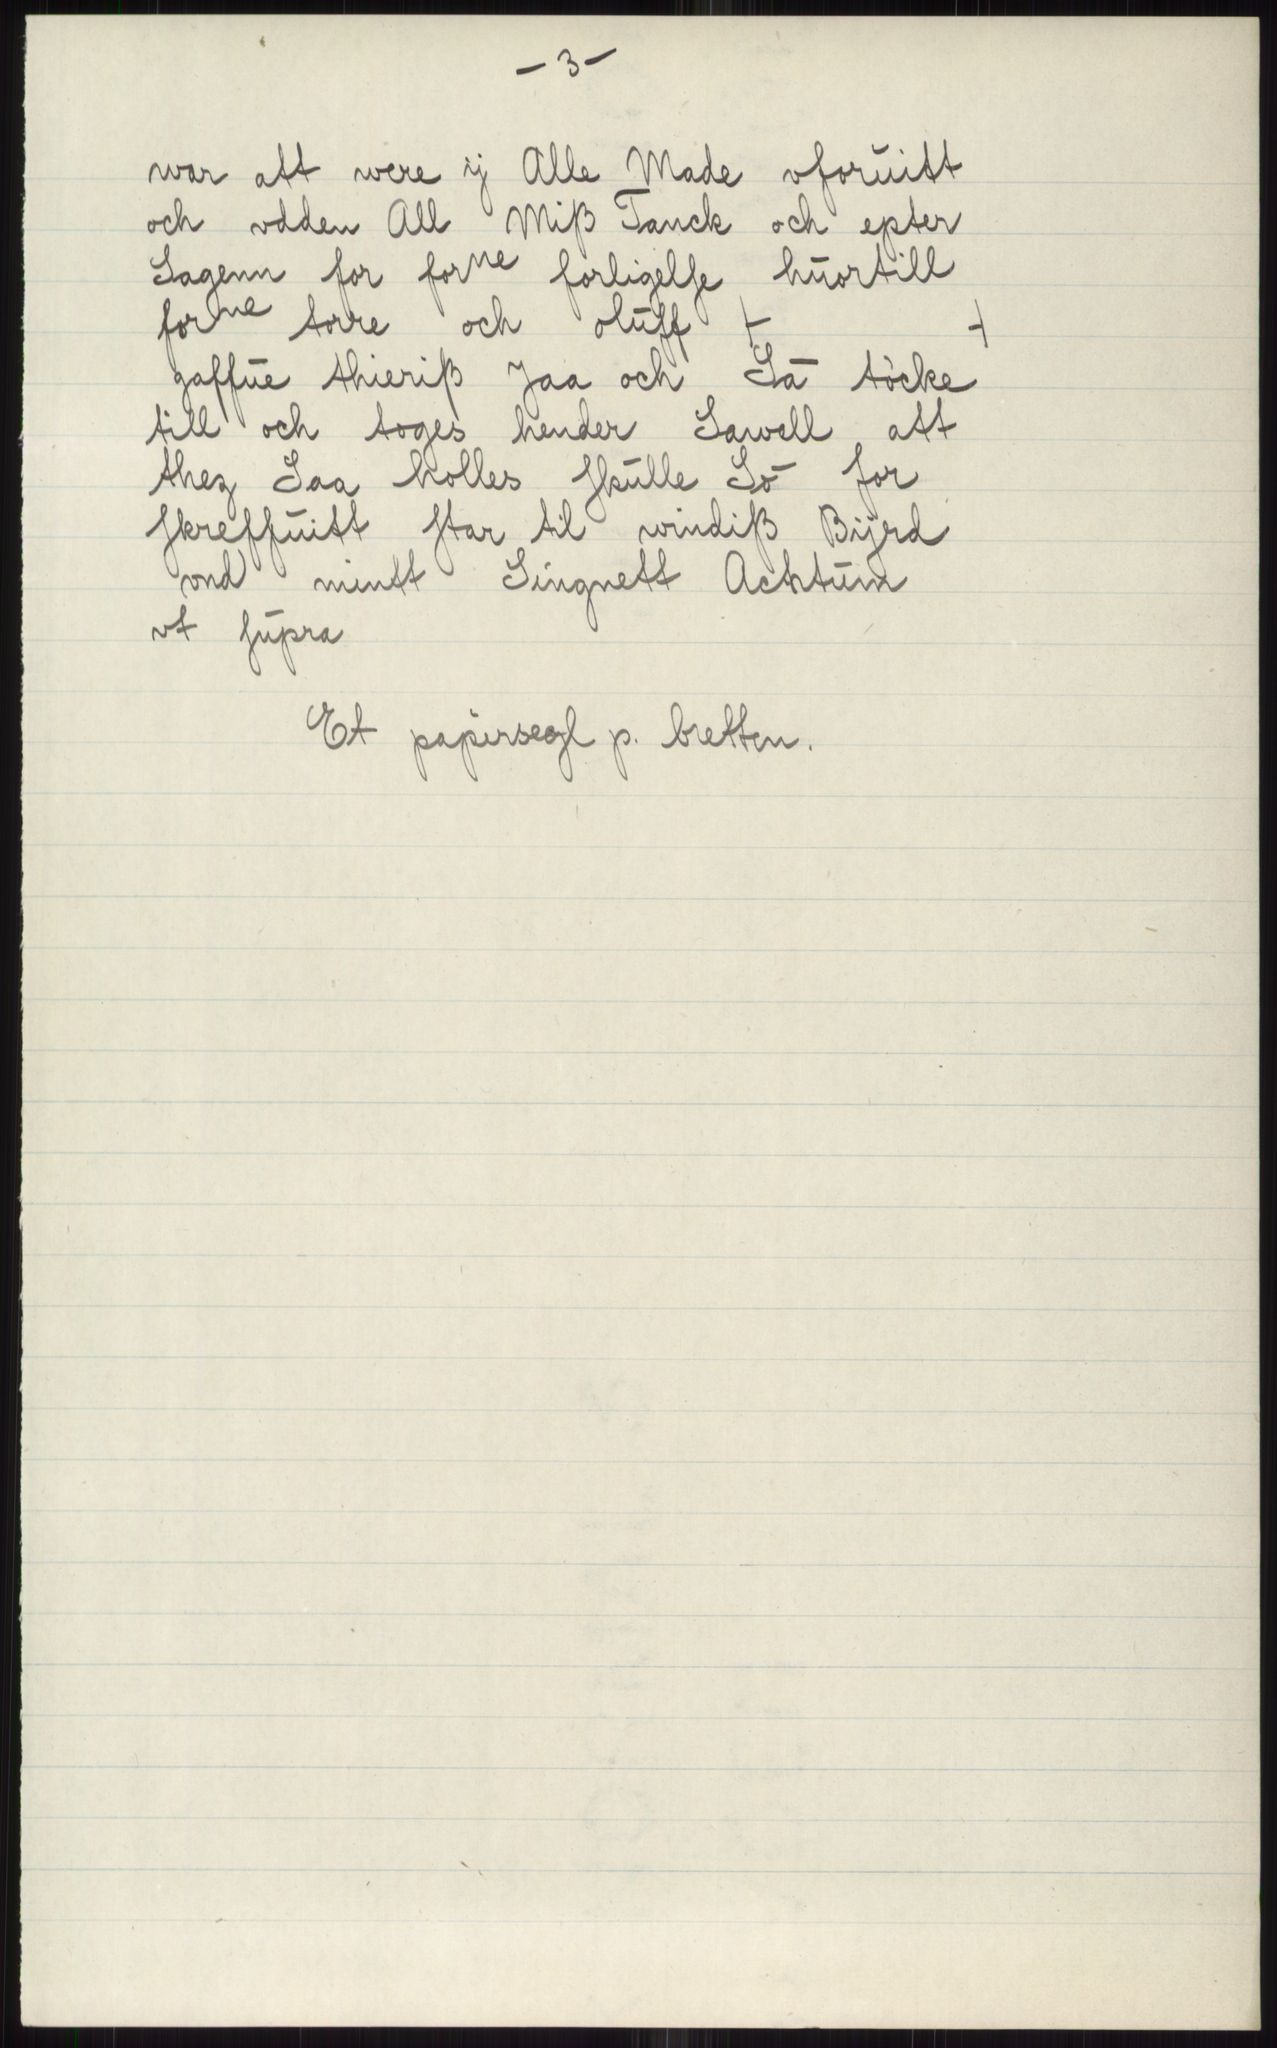 - 3 -
war att were ij Alle Made vforuitt
och vdden All Miß Tanck och epter
Sagenn for forne forligelsse huortill
forne torre och oluff + +
gaffue thieriß Jaa och Sa töcke
till och toges hender Sawell att
thez Saa holles skulle So for
skreffuitt star til windiß Bijrd
vnd mintt Singnett Actum
vt supra
Et papirsegl p. bretten.